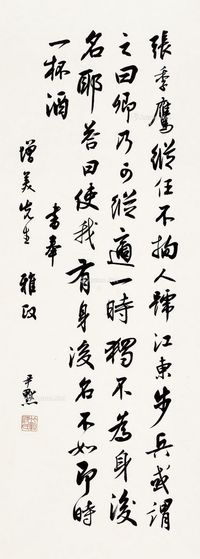 張季鷹縱任不拘人號江東步兵或謂
之曰卿乃可縱適一時獨不為身後
名耶答曰使我有身後名不如即時
一杯酒
書奉
增美先生 雅政
尹默